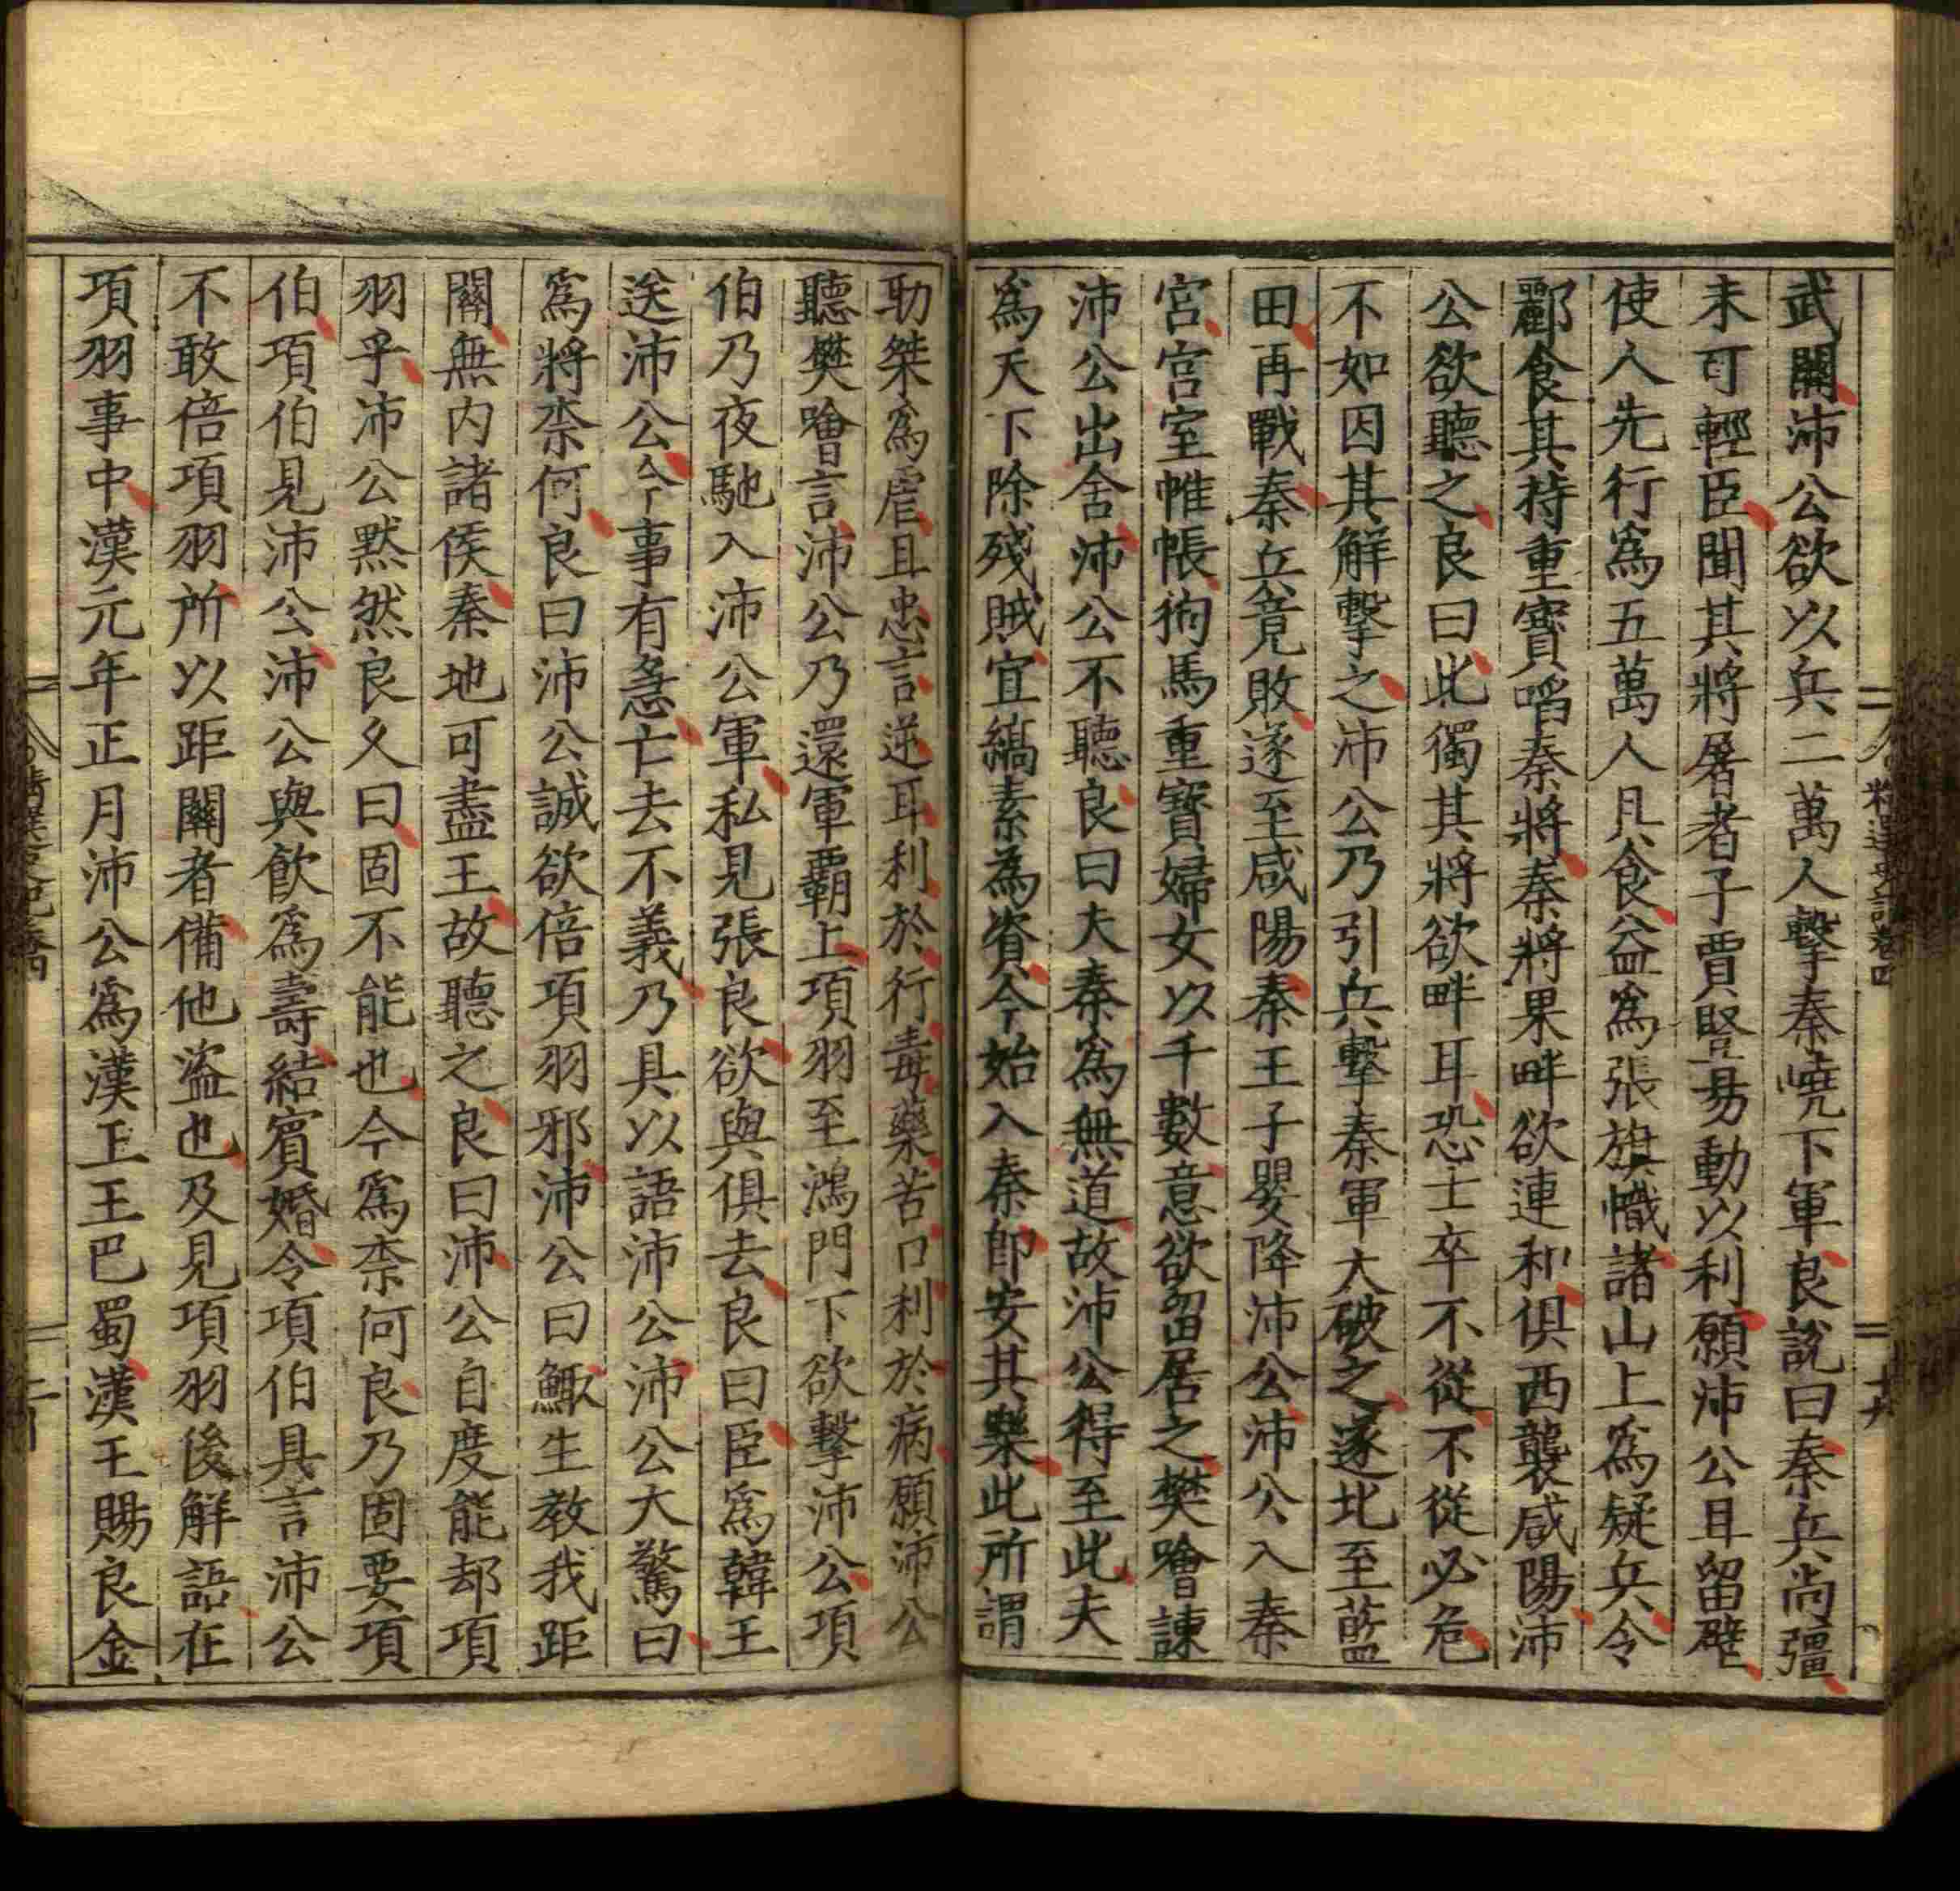 武關沛公欲以兵二萬人擊秦嶢下軍良說曰秦兵尚彊
未可輕臣聞其將屠者子賈豎易動以利願沛公且留壁
使人先行爲五萬人具食益爲張旗幟諸山上爲疑兵令
酈食其持重寶啗秦將秦將果畔欲連和俱西襲咸陽沛
公欲聽之良曰此獨其將欲畔耳恐士卒不從不從必危
不如因其解擊之沛公乃引兵擊秦軍大破之遂北至藍
田再戰秦兵竟敗遂至咸陽秦王子嬰降沛公沛公入秦
宮宮室帷帳狗馬重寶婦女以千數意欲留居之樊噲諫
沛公出舍沛公不聽良曰夫秦爲無道故沛公得至此夫
爲天下除殘賊宜縞素為資今始入秦卽安其樂此所謂
助桀爲虐且忠言逆耳利於行毒藥苦口利於病願沛公
聽樊噲言沛公乃還軍霸上項羽至鴻門下欲擊沛公項
伯乃夜馳入沛公軍私見張良欲與俱去良曰臣爲韓王
送沛公今事有急亡去不義乃具以語沛公沛公大驚曰
爲將柰何良曰沛公誠欲倍項羽邪沛公曰鯫生教我距
關無内諸侯秦地可盡王故聽之良曰沛公自度能却項
羽乎沛公默然良久曰固不能也今爲柰何良乃固要項
伯項伯見沛公沛公與飲爲壽結賓婚令項伯具言沛公
不敢倍項羽所以距關者備他盜也及見項羽後解語在
項羽事中漢元年正月沛公爲漢王王巴蜀漢王賜良金